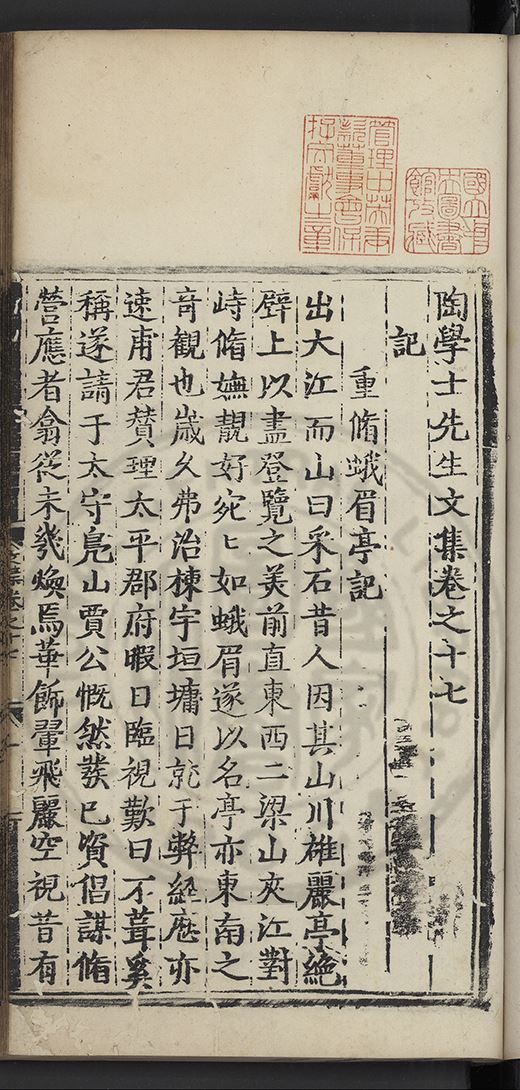 陶學士先生文集卷之十七
記
重脩蛾眉亭記
出大江而山曰采石昔人因其山川雄麗亭絶
壁上以盡登覽之美前直東西二梁山夾江對
峙脩嫵靚好宛〻如蛾眉遂以名亭亦東南之
竒觀也歲久弗治棟宇垣墉日就于弊經歷亦
速甫君賛理太平郡府暇日臨視歎曰不葺奚
稱遂請于太守鳧山賈公慨然裝已資倡謀脩
營應者翕從未幾煥焉華飾翬飛麗空視昔有
國立中央圖書館收藏
管理中英庚款董事會保存文獻之章